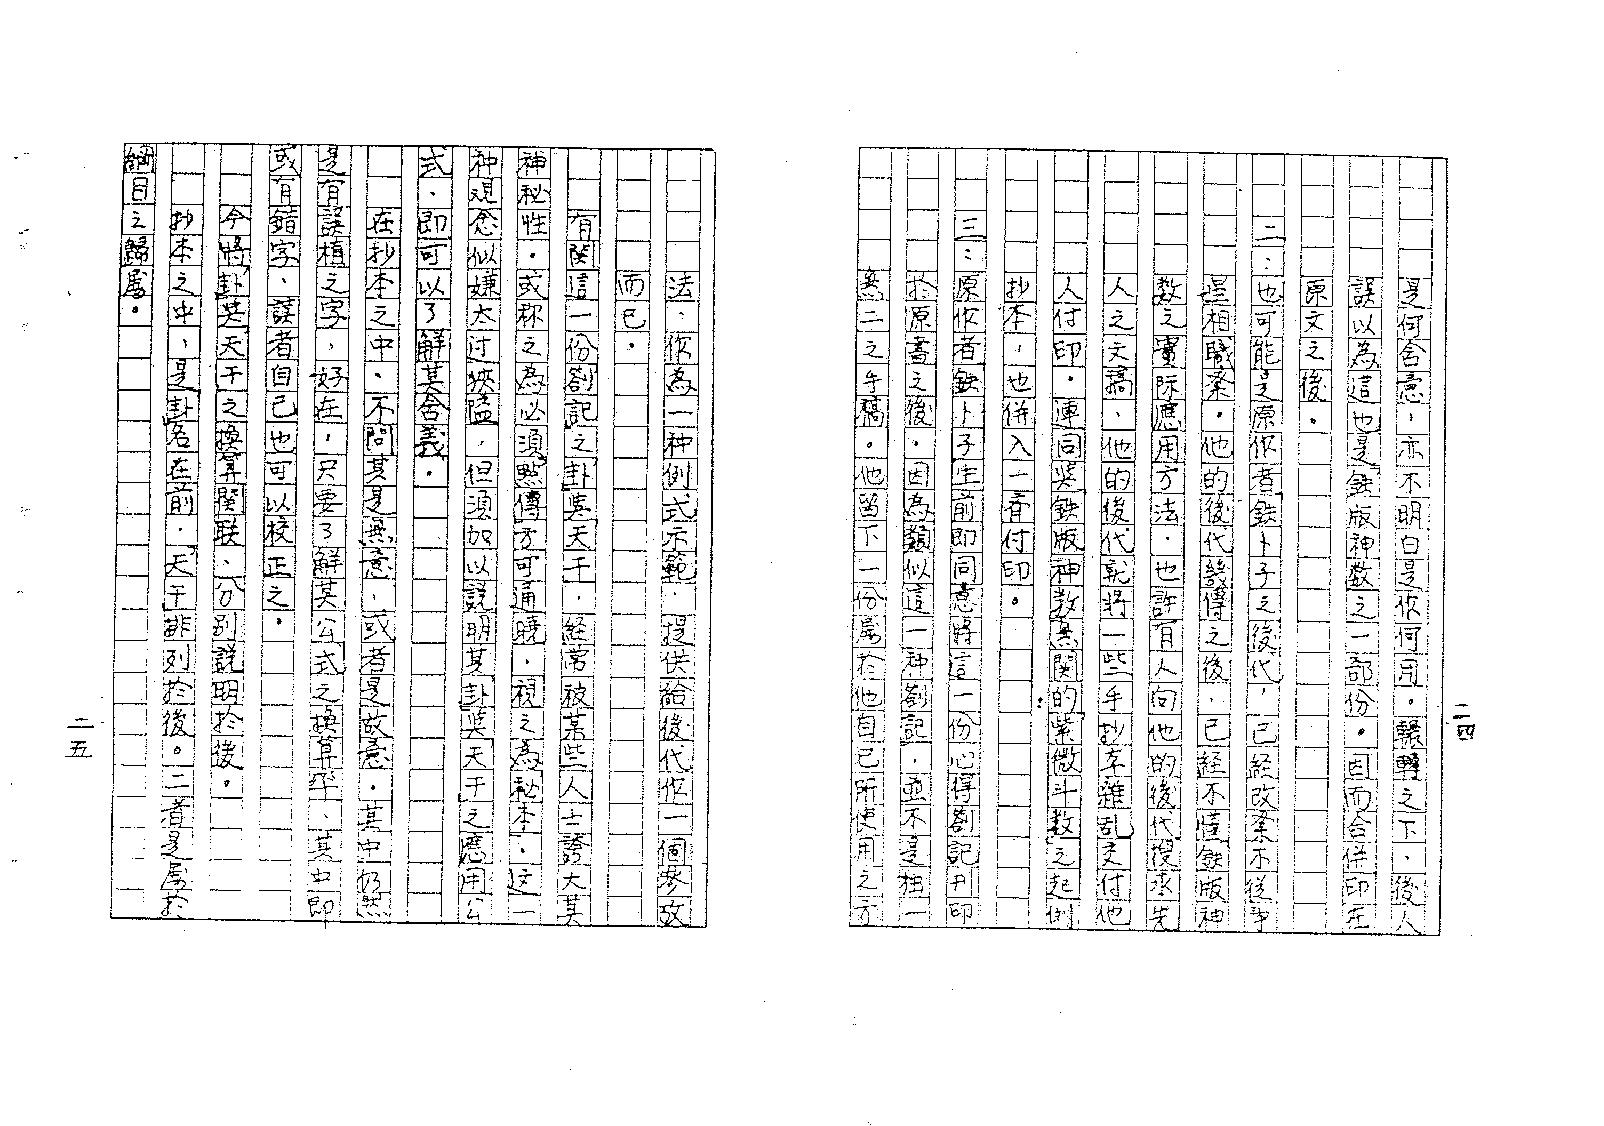 二四
是何含意，亦不明白是作何用。輾轉之下，後人
誤以為這也是鉄版神数之一部份。因而合併印在
原文之後。
二：也可能是原作者鉄卜子之後代，已経改業不從事
星相職業。他的後代幾傳之後，已経不懂鉄版神
数之實际應用方法，也許有人向他的後代搜求先
人之文稿，他的後代就將一些手抄本雜乱交付他
人付印。連同與鉄版神数無関的紫微斗数之起例
抄本，也併入一斉付印。
三：原作者鉄卜子生前即同意將這一份心得劄記刋印
於原書之後。因為類似這一种劄記，並不是独一
無二之手稿。他留下一份屬於他自己所使用之方
法，作為一种例式示範，提供給後代作一個參攷
而已。
有関這一份劄記之卦與天干，経常被某些人士誇大其
神秘性。或称之為必須點傳方可通曉，視之為秘本，这一
种观念似嫌太过狹隘，但須加以說明其卦與天干之應用公
式，即可以了解其含義。
在抄本之中，不問其是無意，或者是故意，其中仍然
是有誤植之字，好在，只要了解其公式之換算率、其中即
或有錯字、讀者自己也可以校正之。
今將卦與天干之換算関联、分别説明於後。
抄本之中，是卦名在前，天干排列於後。二者是屬於
綱目之歸屬。
二五